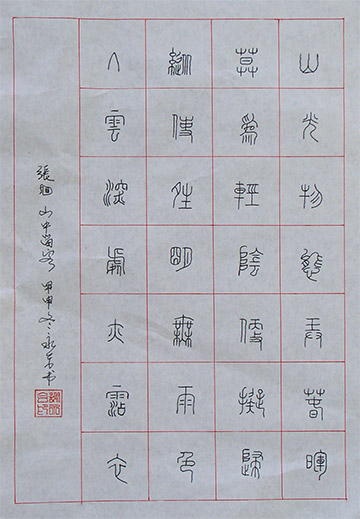 山光物態弄春暉
莫爲輕陰便擬歸
縱使晴明無雨色
入雲深處亦霑衣
張旭 山中留客 甲申冬永书